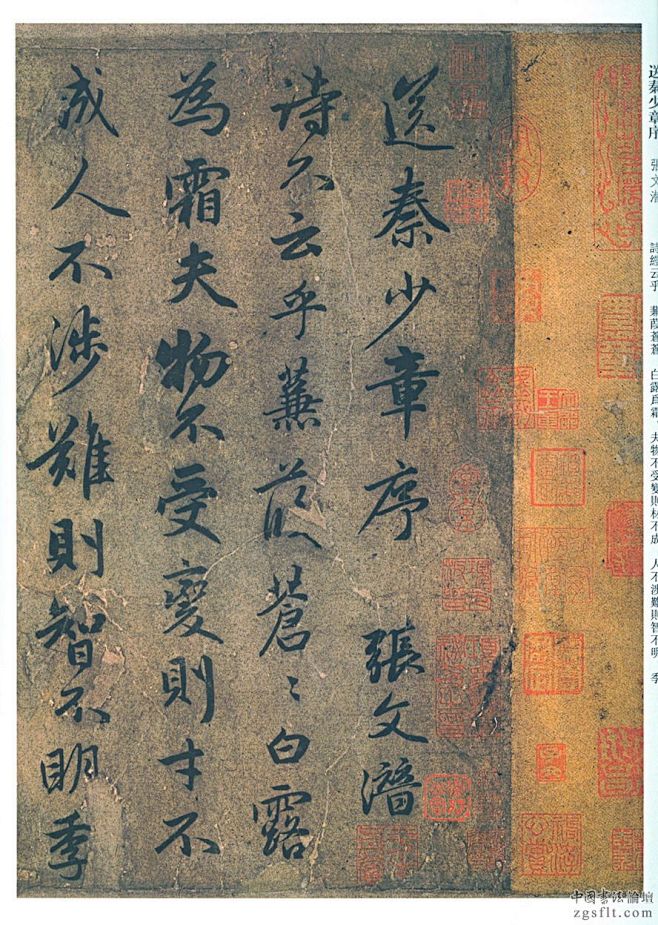 送秦少章序　張文潛　詩經云乎　蒹葭蒼蒼　白露爲霜　夫物不受變則材不成　人不涉難則智不明　季
送秦少章序　張文潛
詩不云乎蒹葭蒼〻白露
為霜夫物不受變則才不
成人不涉難則智不明季
中國書法論壇
zgsflt.com